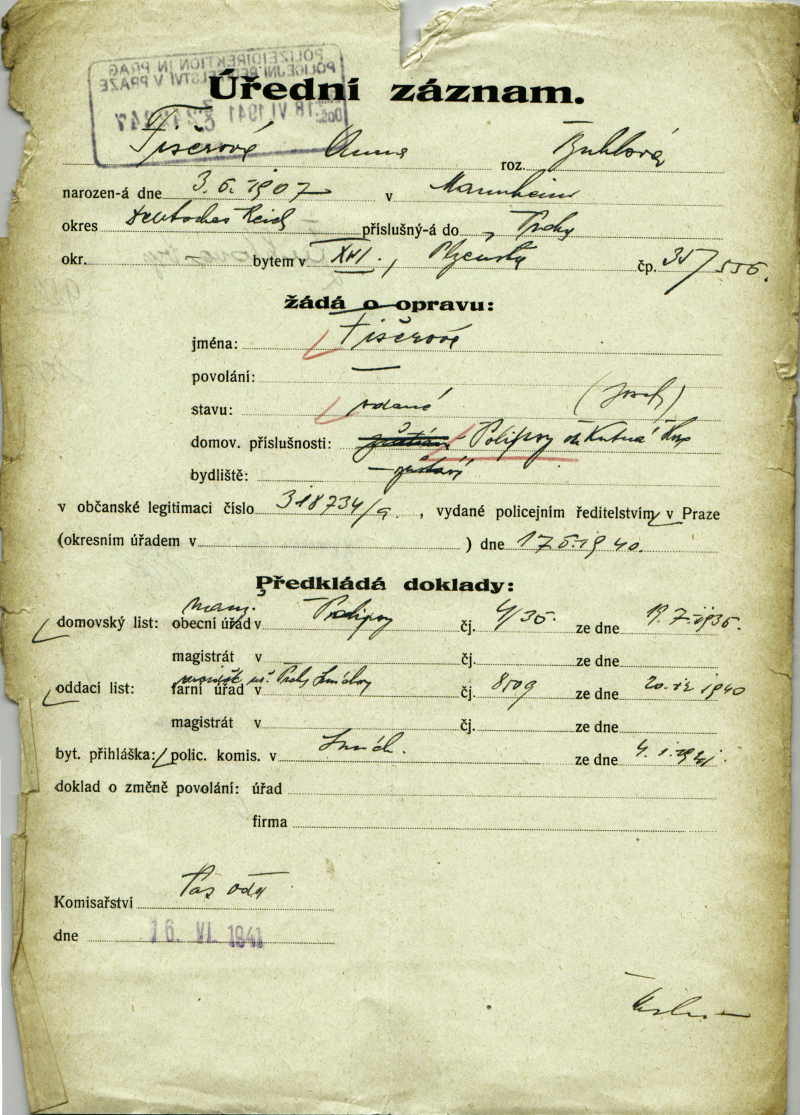 POLIZEIDIREKTION IN PRAG
POLICEJNÍ ŘEDITELSTVÍ V PRAZE
18 VI 1941
Úřední záznam.
Fišerová Anna roz.
narozen-á dne 3. 6. 1907 v Mannheim
okres Deutsches Reich příslušný-á do Prahy
okr. – bytem v XVI., Plzeňská čp. 35/556.
žádá o opravu:
jména: Fišerová
povolání: —
stavu: vdaná (Josef)
domov. příslušnosti: Polipsy Kutná Hora
bydliště:
v občanské legitimaci číslo 318734/a. , vydané policejním ředitelstvím v Praze
(okresním úřadem v ) dne 17 5. 1940.
Předkládá doklady:
domovský list: obecní úřad v Polipsy čj. 4/35. ze dne 19. 7. 1935.
magistrát v čj. ze dne
oddací list: farní úřad v Prahy Smíchov čj. 8509 ze dne 1940
magistrát v čj. ze dne
byt. přihláška: polic. komis. v Smích. ze dne 4. 1. 1941.
doklad o změně povolání: úřad
firma
Komisařství
dne 16. VI. 1941